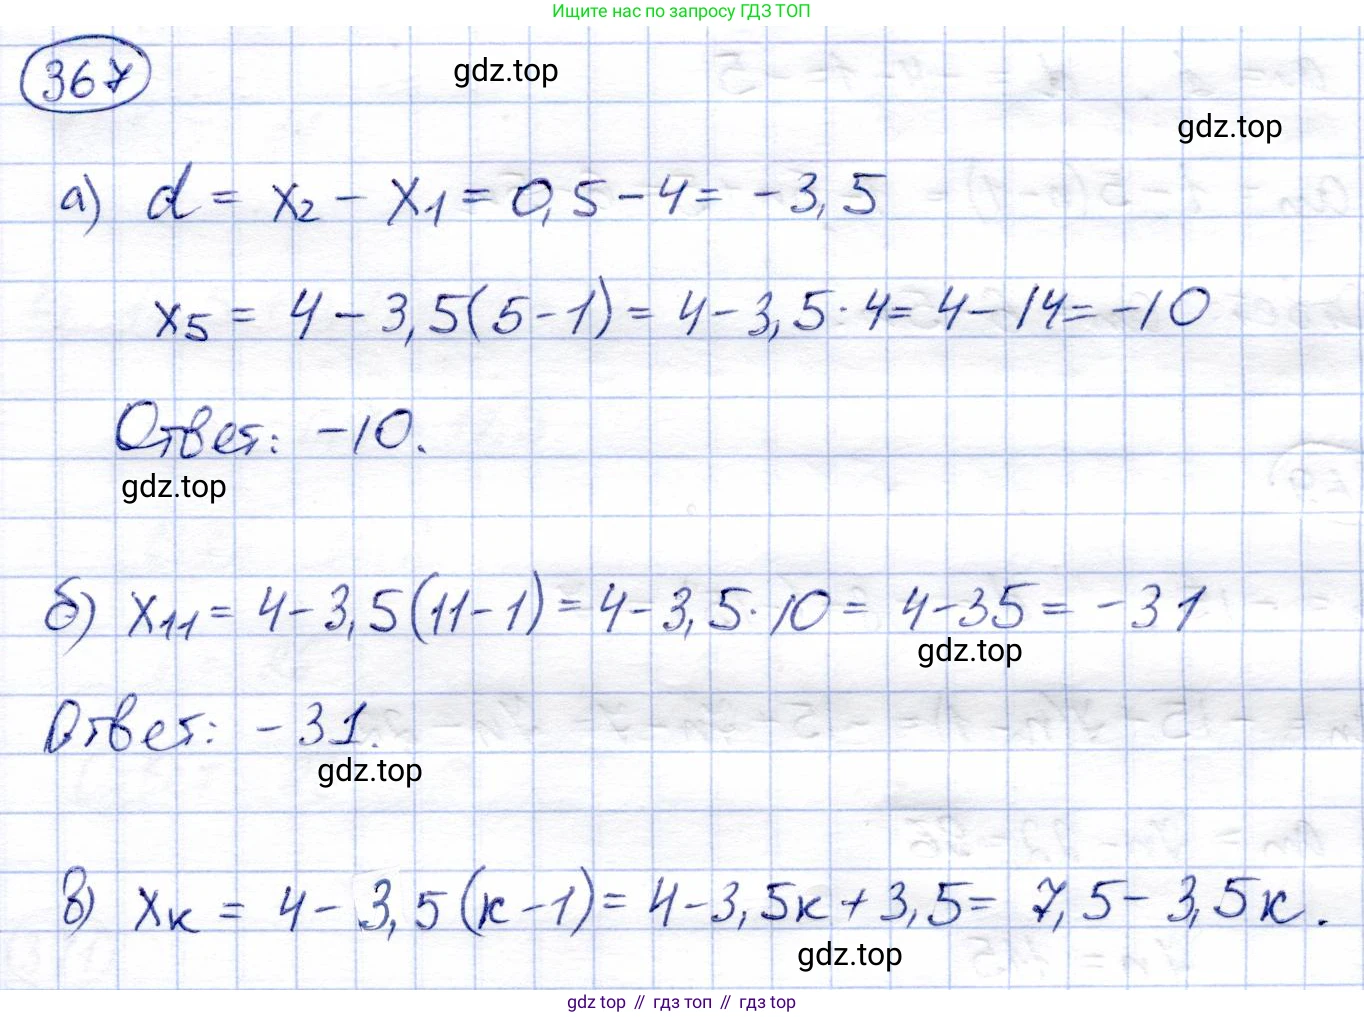 Ищите нас по запросу ГДЗ ТОП
367
gdz.top
gdz.top
а) d = x₂ - x₁ = 0,5 - 4 = -3,5
x₅ = 4 - 3,5(5-1) = 4 - 3,5·4 = 4 - 14 = -10
Ответ: -10.
gdz.top
б) x₁₁ = 4 - 3,5(11-1) = 4 - 3,5·10 = 4 - 35 = -31
gdz.top
Ответ: -31.
gdz.top
в) xₖ = 4 - 3,5(к-1) = 4 - 3,5к + 3,5 = 7,5 - 3,5к.
gdz.top
gdz top // гдз топ // гдз top